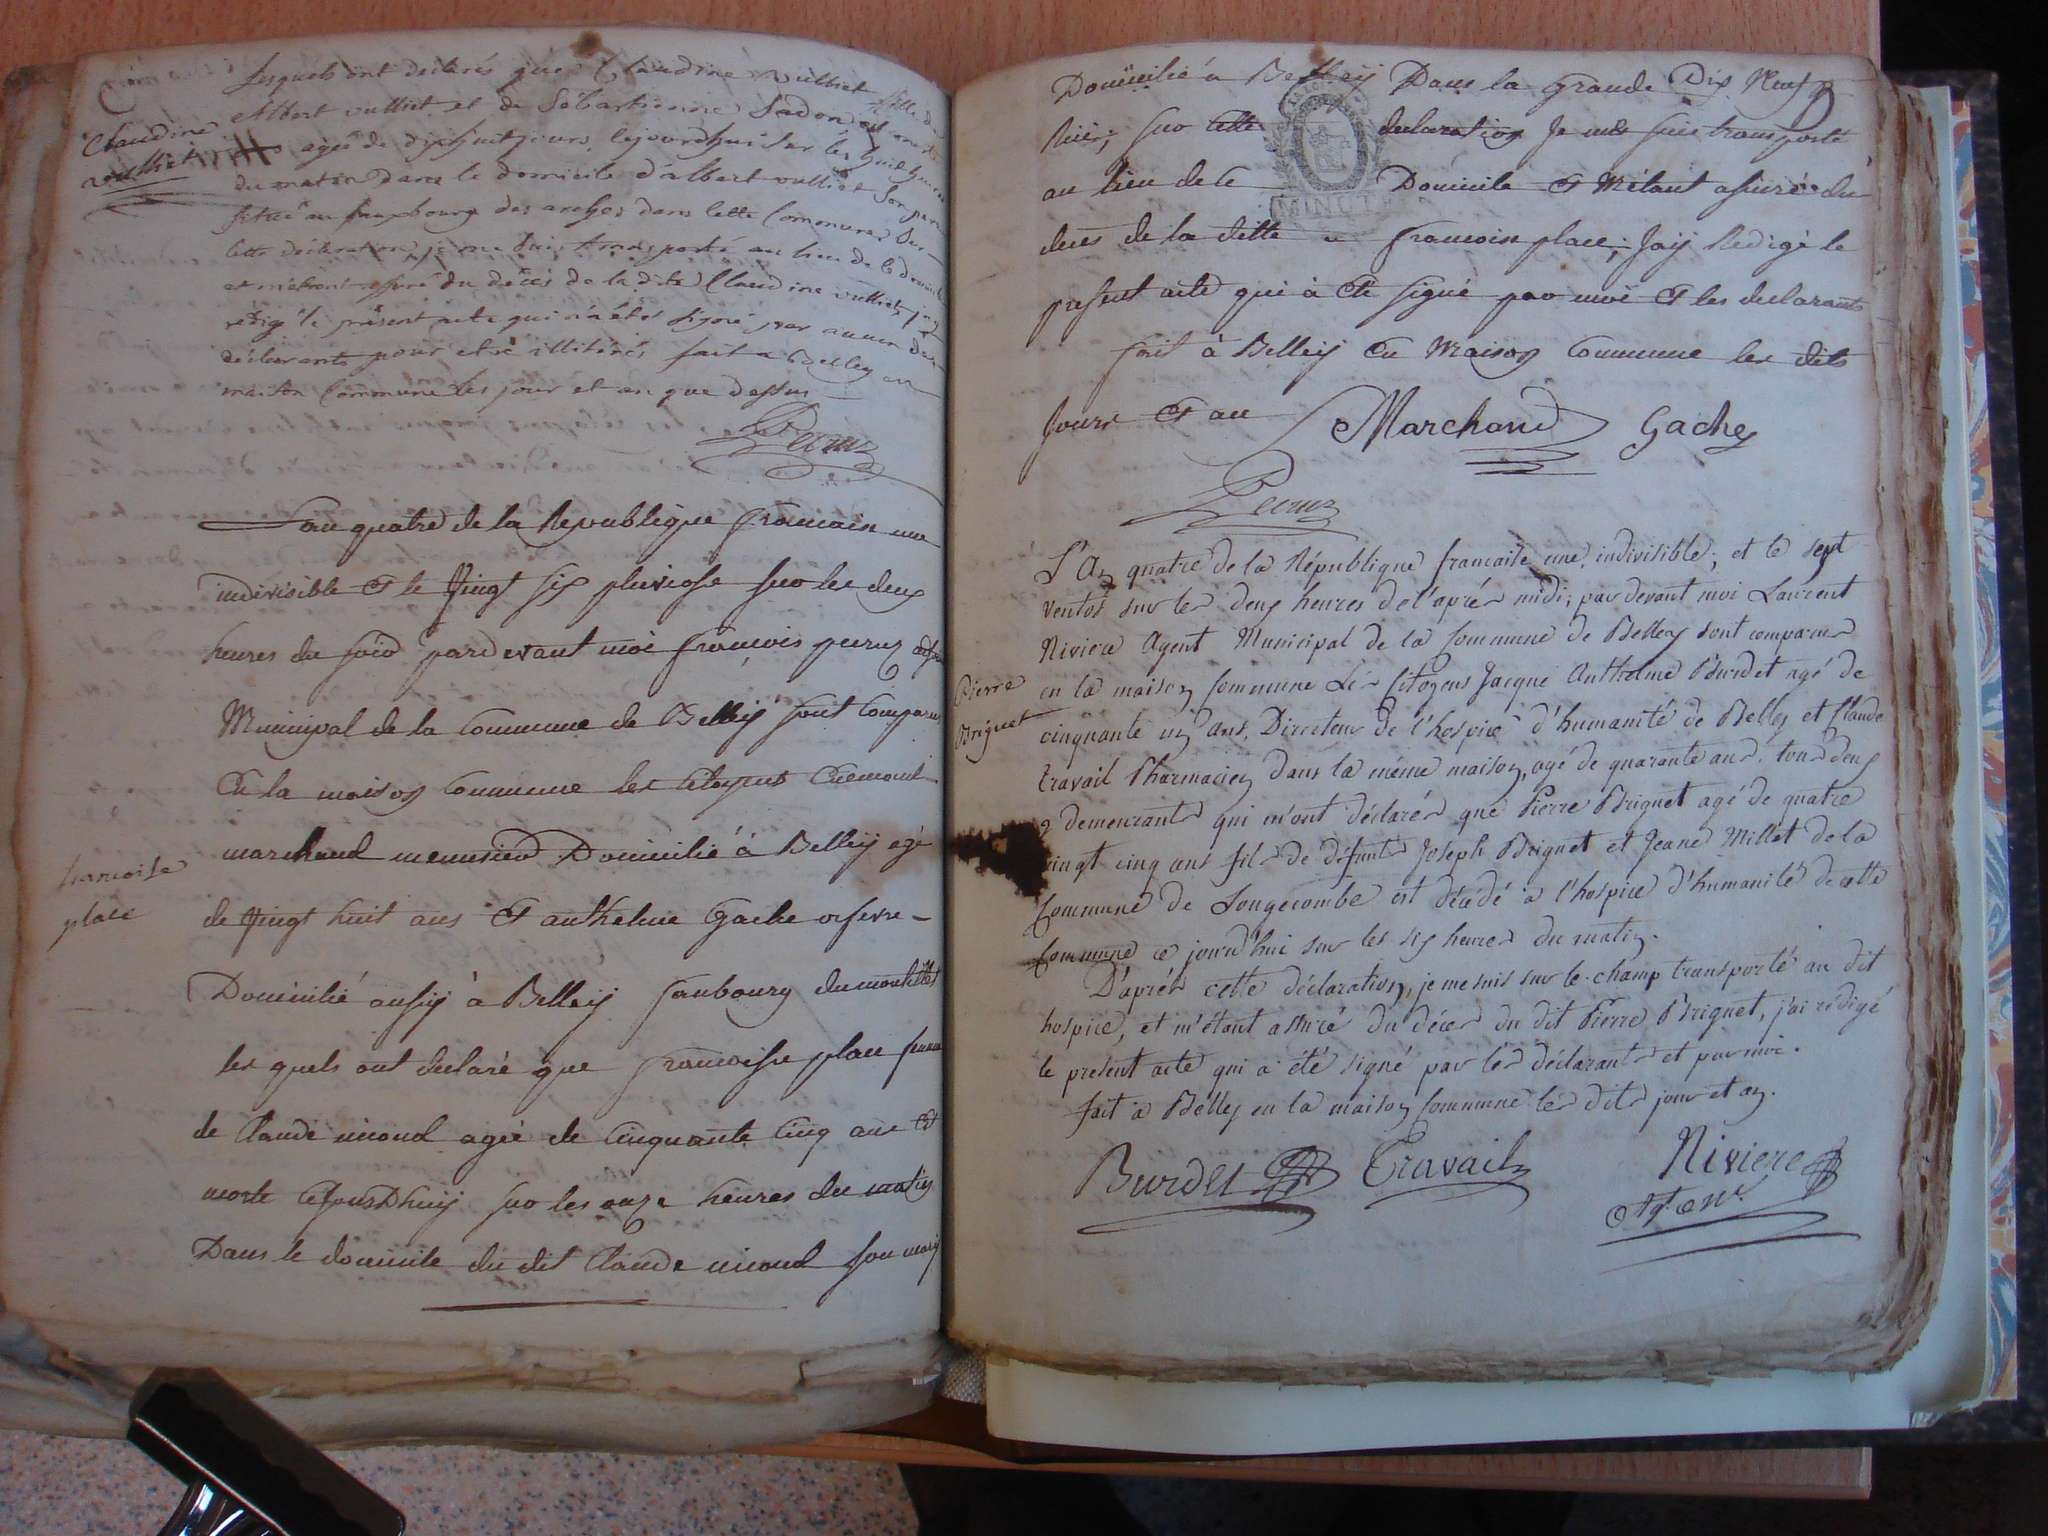 lesquels ont declarés que Claudine vulliet fille de
Albert vulliet et de Sébastienne
Claudine
vulliet
agée de dixhuit jours, cejourdhui sur les huit heures
du matin dans le domicile d'albert vulliet Son pere
situé au fauxbourg des arches dans cette Commune Sur
cette déclaration je me suis transporté au lieu de ce domicile
et m'étant assuré du décès de la dite Claudine vulliet, j'ay
rédigé le présent acte qui n'a été signé par aucun des
déclarants pour etre illitérés fait a Belley en
maison Commune les jour et an que dessus
Peruz
L'an quatre de la Republique francaise une
indivisible et le Vingt six pluviose sur les deux
heures du soir pardevant moi françois peruz
Municipal de la Commune de Belley sont comparus
En la maison Commune les Citoyens
marchand menuisier Domicilié à Belley agé
francoise
place
de Vingt huit ans et anthelme Gache orfevre
Domicilié aussy à Belley faubourg du
les quels ont declaré que francoise place femme
de Claude nicoud agée de Cinquante Cinq ans est
morte cejourdhuy sur les onze heures du matin
Dans le domicile du dit Claude nicoud son mary
Domicilié a Belley Dans la grande Dix Neuf
sur cette declaration Je me suis transporté
au lieu de ce Domicile et M'étant assuré du
MINUTE
deces de la ditte francoise place, J'ay Redigé le
present acte qui à eté signé par moi et les declarants
fait à Belley En Maison Commune les dits
jours et an Marchand Gache
Peruz
L'An quatre de la République francaise une, indivisible; et le sept
ventos sur les deux heures de l'après midi; par devant moi Laurent
Riviere Agent Municipal de la Commune de Belley sont comparus
Pierre
Briguet
en la maison Commune Les Citoyens Jacque Anthelme Burdet agé de
cinquante un ans, Directeur de l'hospice d'humanité de Belley et Claude
travail Pharmacien dans la même maison, agé de quarante ans. tous deux
y demeurants qui m'ont déclarés que Pierre Briguet agé de quatre
vingt cinq ans fils de défunts Joseph Briguet et Jeane Millet de la
Commune de Songecombe est décédé à l'hospice d'humanité de cette
Commune ce jourd'hui sur les six heures du matin.
D'après cette déclaration, je me suis sur le champ transporté au dit
hospice, et m'étant assuré du décès du dit Pierre Briguet, j'ai redigé
le present acte qui a été signé par les déclarants et par moi.
fait à Belley en la maison Commune les dits jour et an.
Burdet Travail Riviere
Agent